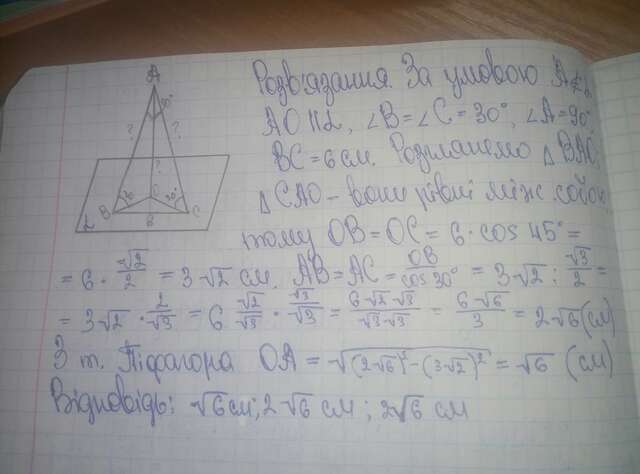 A
90°
? ?
?
30° O 30°
B C
6
α
Розв'язання. За умовою A∉α,
AO ∥ α, ∠B=∠C=30°, ∠A=90°
BC=6 см. Розглянемо △BAO,
△CAO – вони рівні між собою,
тому OB=OC=6·cos 45°=
=6·√2/2=3√2 см. AB=AC=OB/cos30°=3√2:√3/2=
=3√2·2/√3=6√2/√3·√3/√3=6√2·√3/√3·√3=6√6/3=2√6(см)
З т. Піфагора OA=√(2√6)²-(3√2)²=√6 (см)
Відповідь: √6 см; 2√6 см; 2√6 см